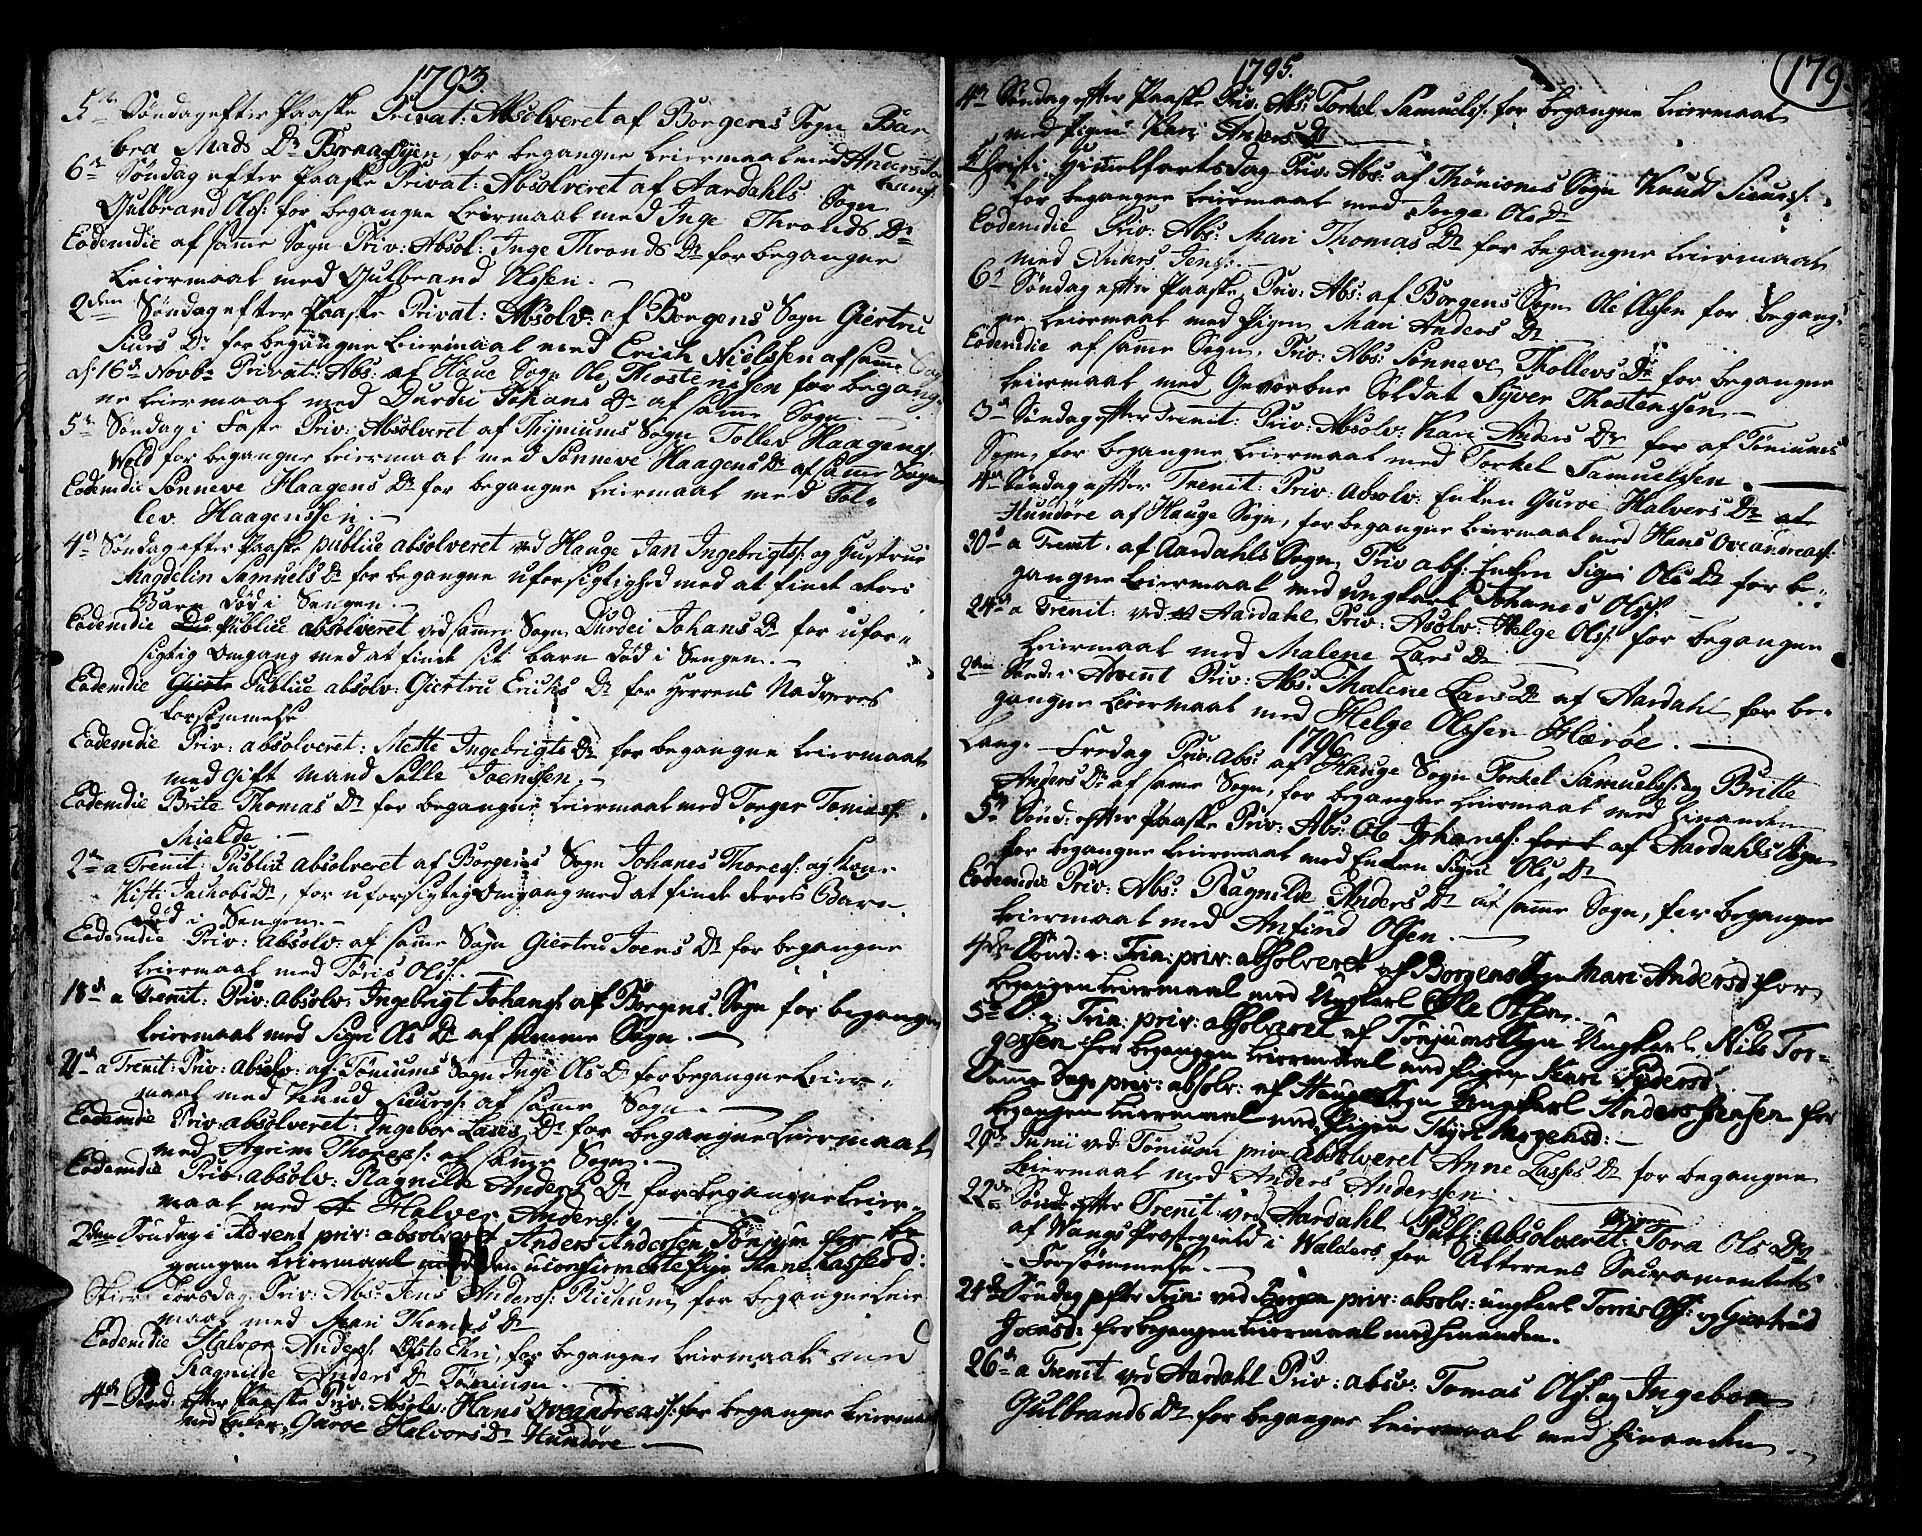 1793.
5te Søndag efter Paaske Privat: Absolveret af Borgens Sogn Bar
bra Mads Dr for begangne Leiermaal med Anders
6te Søndag efter Paaske Privat: Absolveret af Aardahls Sogn
Gulbrand Ols: for begangne Leiermaal med Inge Thronds Dr
Eodemdie af samme Sogn Priv: Absol: Inge Thronds Dr for begangne
Leiermaal med Gulbrand Olssen.
2den Søndag efter Paaske Privat: Absolv: af Borgens Sogn Giertru
Siurs Dr for begangne Leiermaal med Erich Nielssen af samme Sog
d: 16de Novbr Privat: Abs: af Haue Sogn Ole Thostenssen for begang-
ne Leiermaal med Durdei Johans Dr af samme Sogn.
5te Søndag i Faste Priv: Absolveret af Thyniums Sogn Tollev Haagens:
Wold for begangne Leiermaal med Sønneve Haagens Dr af samme Sogn
Eodemdie Sønneve Haagens Dr for begangne Leiermaal med Tol-
lev Haagenssen.
4de Søndag efter Paaske publice absolveret ved Hauge Jan Ingebrigts: og Hustrue
Magdelin Samuels Dr for begangne uforsigtighed med at finde deres
Barn død i Sengen.
Eodemdie Publice absolveret ved samme Sogn Durdei Johans Dr for ufor-
sigtig Omgang med at finde sit barn død i Sengen.
Eodemdie Publice absolv: Giertru Erichs Dr for Herrens Nadveres
forsømmelse
Eodemdie Priv: absolveret: Mette Ingebrigts Dr for begangne Leiermaal
med Gift Mand Salle Joenssen.
Eodemdie Brite Thomas Dr for begangne Leiermaal med Torger Tomas:
Mielde.
2de a Trenit: Publice absolveret af Borgens Sogn Johanes Thores: og Kone
Kisti Jacobs Dr, for uforsigtig Omgang med at finde deres Barn
død i Sengen.
Eodemdie Priv: absolv: af samme Sogn Giertru Joens Dr for begangne
Leiermaal med Toris Ols:
18de a Trenit: Priv: absolv: Ingebrigt Johans: af Borgens Sogn for begangen
Leiermaal med Sigri Ols Dr af samme Sogn.
21de a Trenit: Priv: absolv: af Tøniums Sogn Inge Ols Dr for begangne Leier-
maal med Knud Siurs: af samme Sogn.
Eodemdie Priv: absolveret: Ingebor Lases Dr for begangne Leiermaal
med Agrim Thores: af samme Sogn.
Eodemdie Priv: absolv: Ragnilde Anders Dr for begangne Leier-
maal med Halver Anders:
2den Søndag i Advent priv: absolveret Anders Andersen Tønjum for be
gangen Leiermaal den uconfirmerte Pige Anne Lassesd:
Skier Torsdag Priv: Abs: Jens Anders: for begangne Leier
maal med Mari Thomas Dr
Eodemdie Halvor Anders: for begangne Leiermaal med
Ragnilde Anders Dr Tønium.
4de Sønd: efter Paaske Priv: Absolv: Hans Oveandreas: for begangne Leiermaal
med Enken Guroe Halvors Dr Hundøre
1795.
179
4de Søndag efter Paaske Priv: Abs: Torkel Samuels: for begangne Leiermaal
med Pigen Kari Anders Dr
Christi Himmelfartsdag Priv: Abs: af Thønioms Sogn Knudt Siurs:
for begangne Leiermaal med Inge Ols Dr
Eodemdie Priv: Abs: Mari Thomas Dr for begangne Leiermaal
med Anders Jens:
6te Søndag efter Paaske Priv: Abs: af Borgens Sogn Ole Olssen for begang-
ne Leiermaal med Pigen Mari Anders Dr
Eodemdie af samme Sogn, Priv: Abs: Sønneve Thollevs Dr for begangne
Leiermaal med Gevorbne Soldat Syver Thostenssen
3de Søndag efter Trenit: Priv: Absolv: Kari Anders Dr for af Tøniums
Sogn for begangne Leiermaal med Torkel Samuelssen.
4de Søndag efter Trenit: Priv: absolv: Enken Guroe Halvers Dr
Hundøre af Hauge Sogn, for begangne Leiermaal med Hans Oveandreas:
20de a Trenit. af Aardahls Sogn Priv abs: Enken Signi Ols Dr for be-
gangne Leiermaal med ungkarl Johanes Ols:
24de a Trenit: ved Aardahl, Priv: Absolv: Helge Ols: for begangne
Leiermaal med Malene Lars Dr
2den Sønd: i Advent Priv: Abs: Malene Lars Dr af Aardahl for be-
gangne Leiermaal med Helge Olssen Hærøe.
1796
Lang-Fredag Priv: abs: af Hauge Sogn Torkel Samuels: og Britte
Anders Dr af samme Sogn, for begangne Leiermaal med hinanden
5te Sønd: efter Paaske Priv: Abs: Ole Johanes: af Aardahls Sogn
for begangne Leiermaal med Enken Signe Ols Dr
Eodemdie Priv: Abs: Ragnilde Anders Dr af samme Sogn, for begangne
Leiermaal med Anfind Olsen.
4de Sønd: e: Trin: priv: absolveret af Borgens Sogn Mari Andersd for
begangen Leiermaal med Ungkarl Ole Olsen.
5te S: e: Trin: priv: absolveret af Tønjums Sogn Ungkarl Nils Tor-
gessen for begangen Leiermaal med Pigen Kari Pedersd
Samme Dag priv: absolv: af Hauge Sogn Ungkarl Anders Jensen for
begangen Leiermaal med Pigen Thyri Mogensd:
29de Junii ved Tønium priv absolveret Anne Lasses Dr for begangne
Leiermaal med Anders Anderssen
22de Sønd: efter Trenit: ved Aardahl Publ: absolveret: Tora Ols Dr
af Wangs Præstegield i Walders, for Alterens Sacramentets
Forsømmelse.
24de Søndag efter Trin: ved Borgen priv: absolv: ungkarl Torris Ols: og Giertrud
Joensd: for begangen Leiermaal med hinanden.
26de a Trenit ved Aardahl Priv: absv: Tomas Ols: og Ingebor
Gulbrands Dr for begangne Leiermaal med hinanden